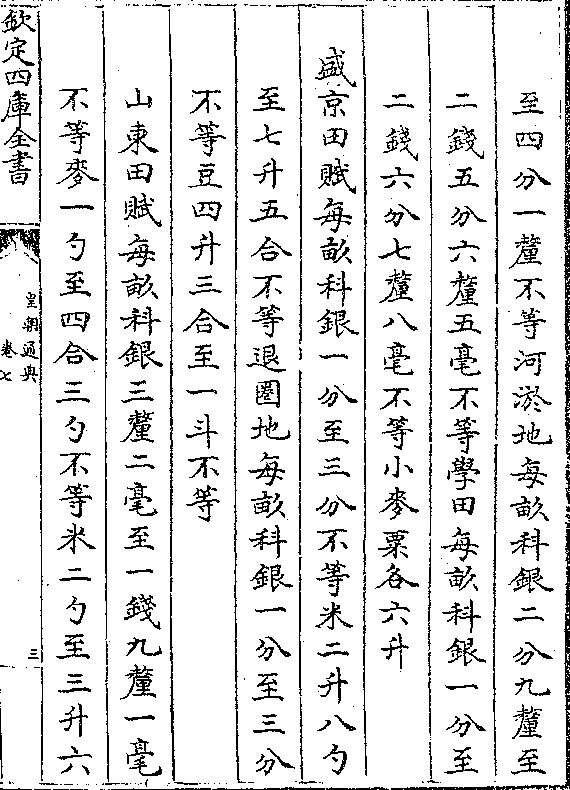 至四分一釐不等河淤地每畝科銀二分九釐至
二錢五分六釐五毫不等學田每畝科銀一分至
二錢六分七釐八毫不等小麥粟各六升
盛京田賦每畝科銀一分至三分不等米二升八勺
至七升五合不等退圈地每畝科銀一分至三分
不等豆四升三合至一斗不等
山東田賦每畝科銀三釐二毫至一錢九釐一毫
不等麥一勺至四合三勺不等米二勺至三升六
欽定四庫全書
皇朝通典
卷七
三